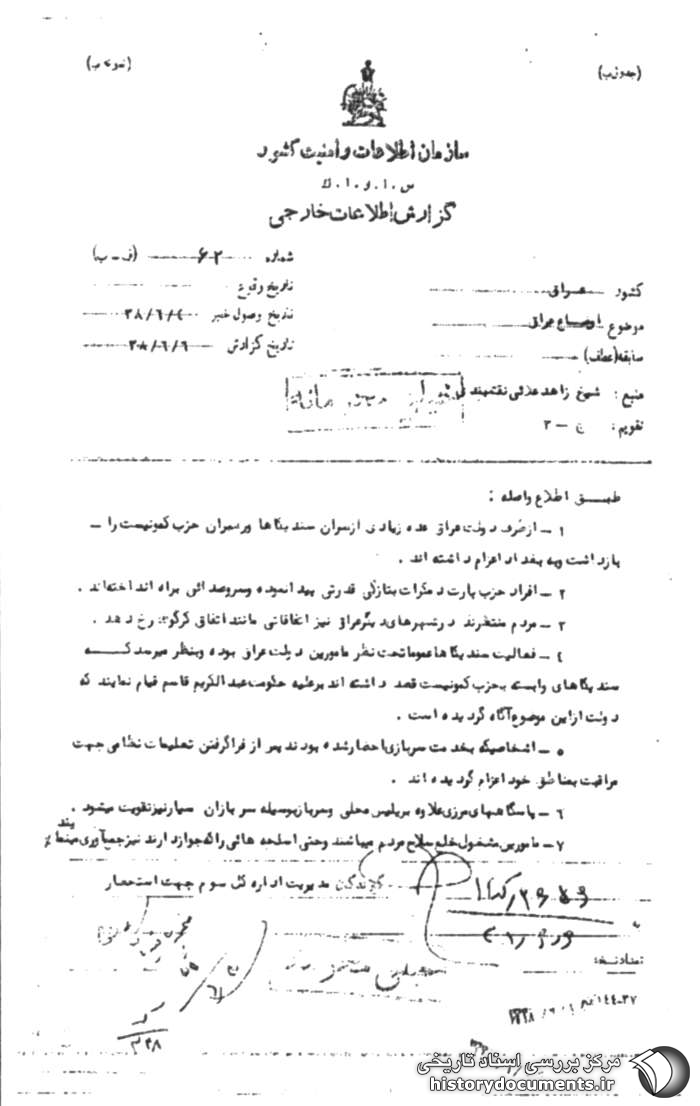 (جدول ب)
(نمونه ب)
سازمان اطلاعات و امنیت کشور
س . ا . و . ا . ک
گزارش اطلاعات خارجی
شماره ۶۲ (ف - ب)
تاریخ وقوع
تاریخ وصول خبر ۳۸/۶/۴
تاریخ گزارش ۳۸/۶/۶
کشور عراق
موضوع اوضاع عراق
سابقه (عطف)
منبع : شیخ زاهد علائی نقشبندی
تقویم : ج - ۲
خیلی محرمانه
طبق اطلاع واصله :
۱ - از طرف دولت عراق عده زیادی از سران سندیکاها و رهبران حزب کمونیست را -
بازداشت و به بغداد اعزام داشته اند .
۲ - افراد حزب پارت دمکرات بتازگی قدرتی پیدا نموده و سروصدائی براه انداخته‌اند .
۳ - مردم منتظرند در شهرهای دیگر عراق نیز اتفاقاتی مانند اتفاق کرکوک رخ دهد .
٤ - فعالیت سندیکاها عموما تحت نظر مامورین دولت عراق بوده و بنظر میرسد که
سندیکاهای وابسته بحزب کمونیست قصد داشته اند بر علیه حکومت عبدالکریم قاسم قیام نمایند که
دولت از این موضوع آگاه گردیده است .
۵ - اشخاصیکه بخدمت سربازی احضار شده بودند پس از فرا گرفتن تعلیمات نظامی جهت
مراقبت بمناطق خود اعزام گردیده اند .
۶ - پاسگاههای مرزی علاوه بر پلیس محلی و سرباز بوسیله سربازان سیار نیز تقویت میشود .
۷ - مامورین مشغول خلع سلاح مردم میباشند وحتی اسلحه هائی را که جواز دارند نیز جمع‌آوری مینمایند
گیرندگان مدیریت اداره کل سوم جهت استحضار
تعداد نسخه:
مرکز بررسی اسناد تاریخی
historydocuments.ir